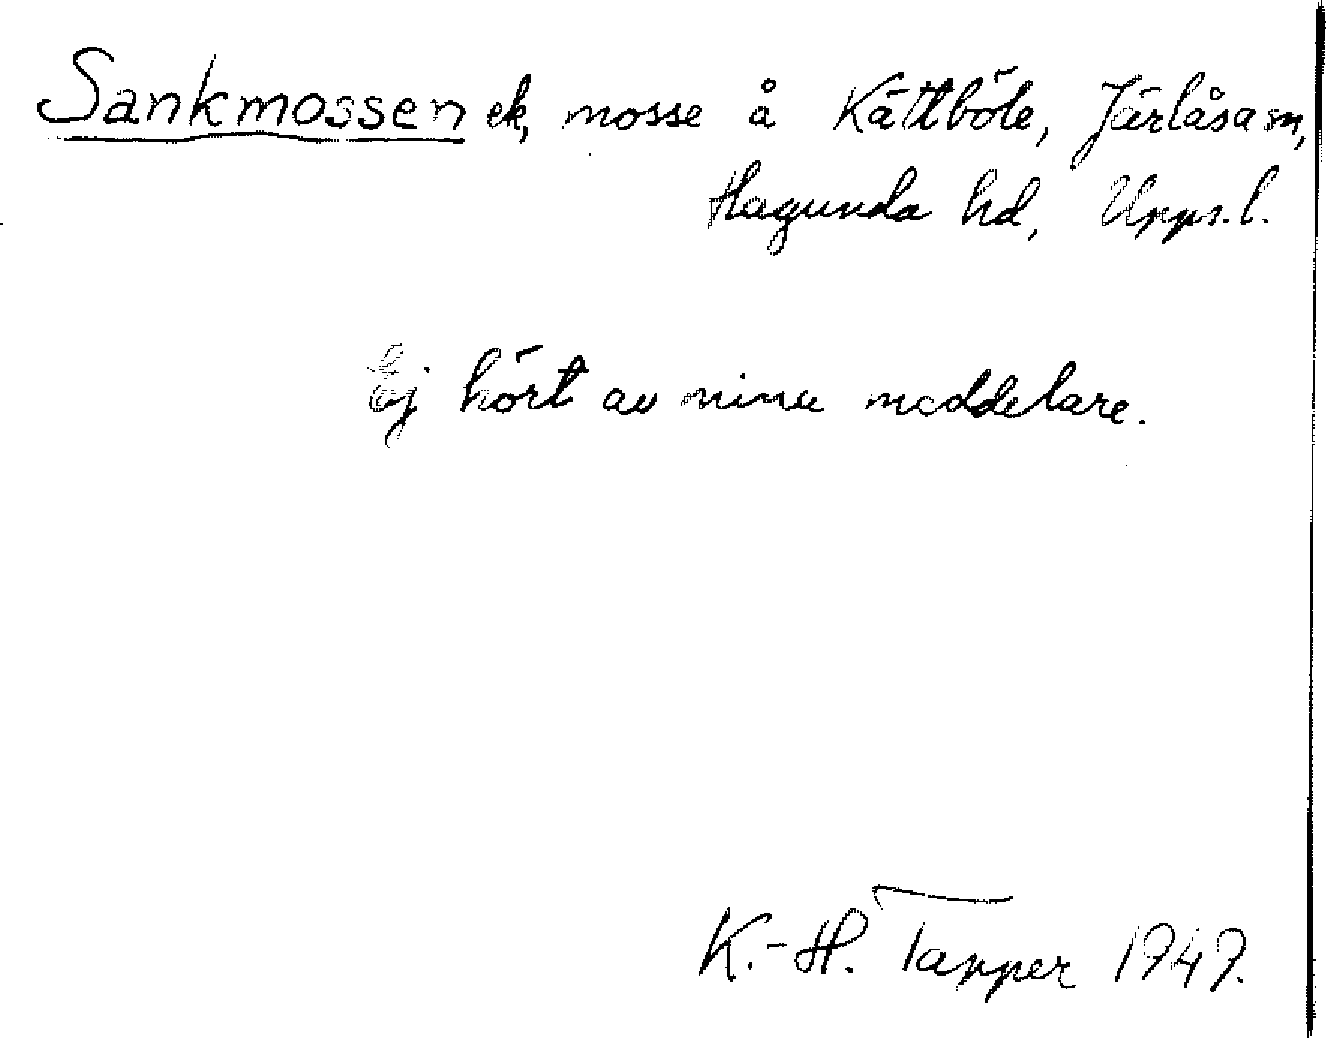 Sankmossen ek, mosse å Kättböle, Järlåsa sn,
Hagunda hd, Upps.l.
Ej hört av mina meddelare.
K.-H. Tapper 1949.